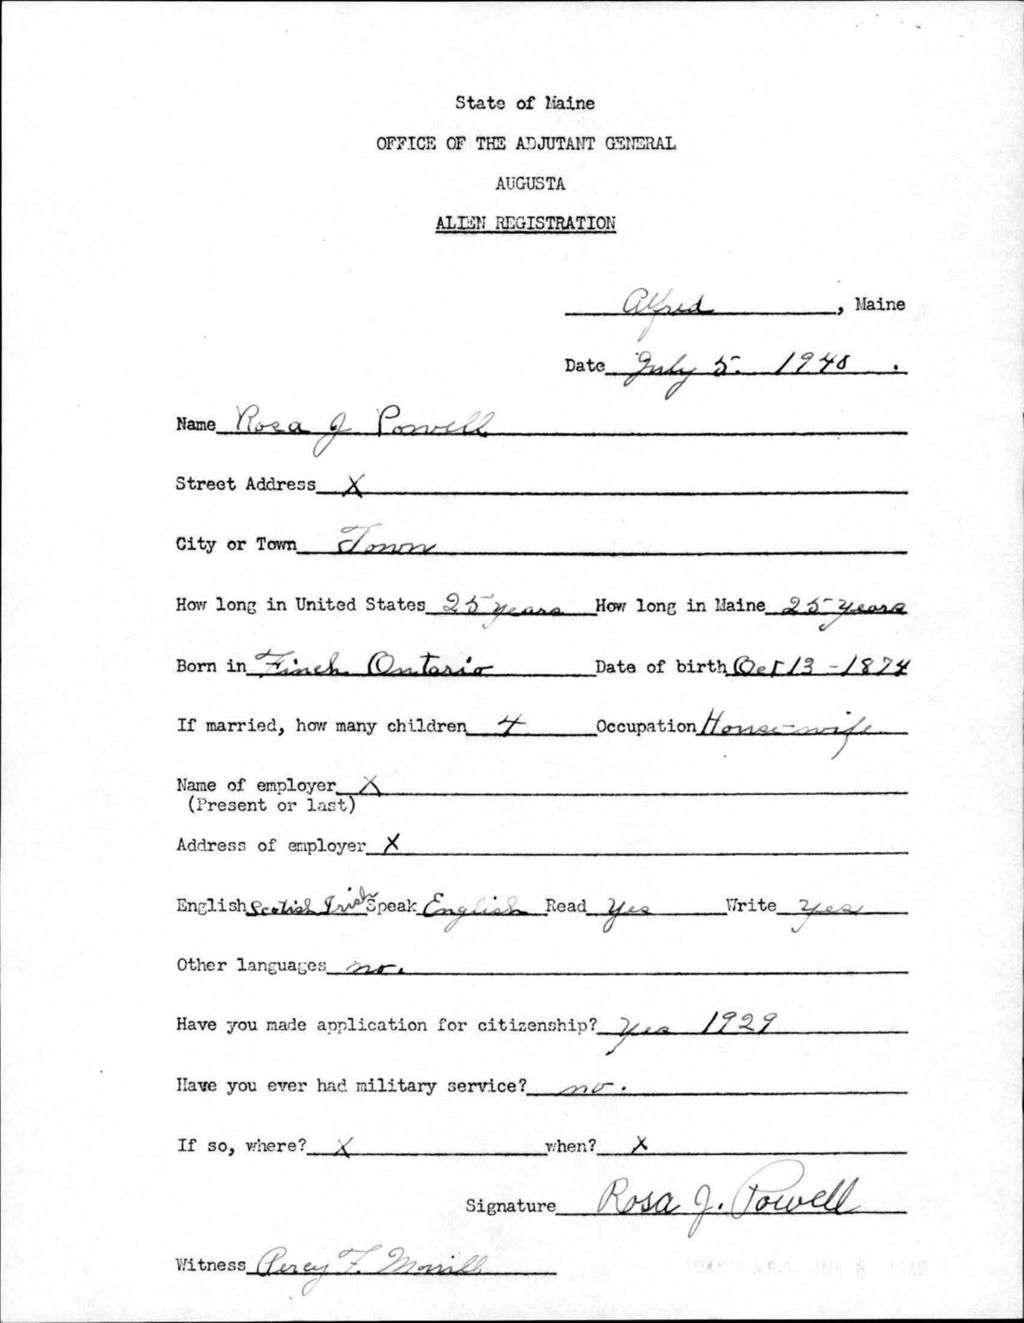 State of Maine
OFFICE OF THE ADJUTANT GENERAL
AUGUSTA
ALIEN REGISTRATION
Alfred, Maine
Date July 5. 1940.
Name Rosa J Powell
Street Address X
City or Town Town
How long in United States 25 years How long in Maine 25 years
Born in Finch Ontario Date of birth Oct 13 - 1874
If married, how many children 4 Occupation House-wife
Name of employer X
(Present or last)
Address of employer X
English Scotish Irish Speak English Read Yes Write Yes
Other languages no.
Have you made application for citizenship? Yes 1929
Have you ever had military service? no.
If so, where? X when? X
Signature Rosa J. Powell
Witness Percy F. Morrill